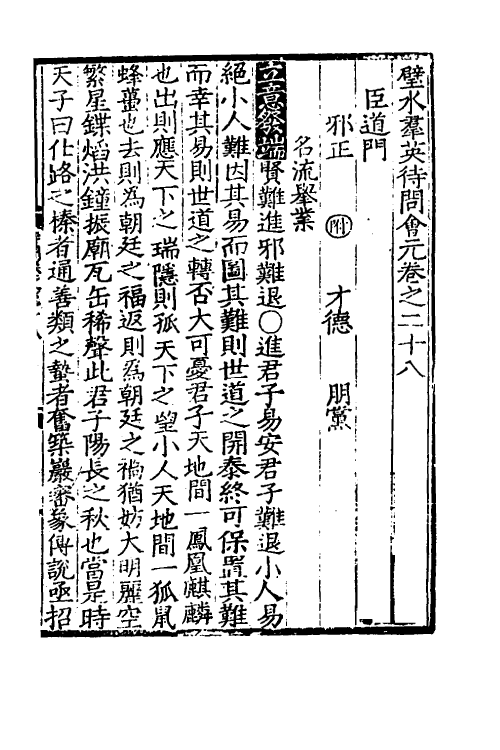 璧水羣英待問會元卷之二十八
臣道門
邪正 附 才德 朋黨
名流舉業
立意發端賢難進邪難退〇進君子易安君子難退小人易
絕小人難因其易而圖其難則世道之開泰終可保置其難
而幸其易則世道之轉否大可憂君子天地間一鳳凰麒麟
也出則應天下之瑞隱則孤天下之望小人天地間一狐鼠
蜂蠆也去則為朝廷之福返則為朝廷之禍猶妨大明麗空
繁星韜焰洪鐘振廟瓦缶稀聲此君子陽長之秋也當是時
天子曰仕路之榛者通善類之蟄者奮築巖審象傅說亟招